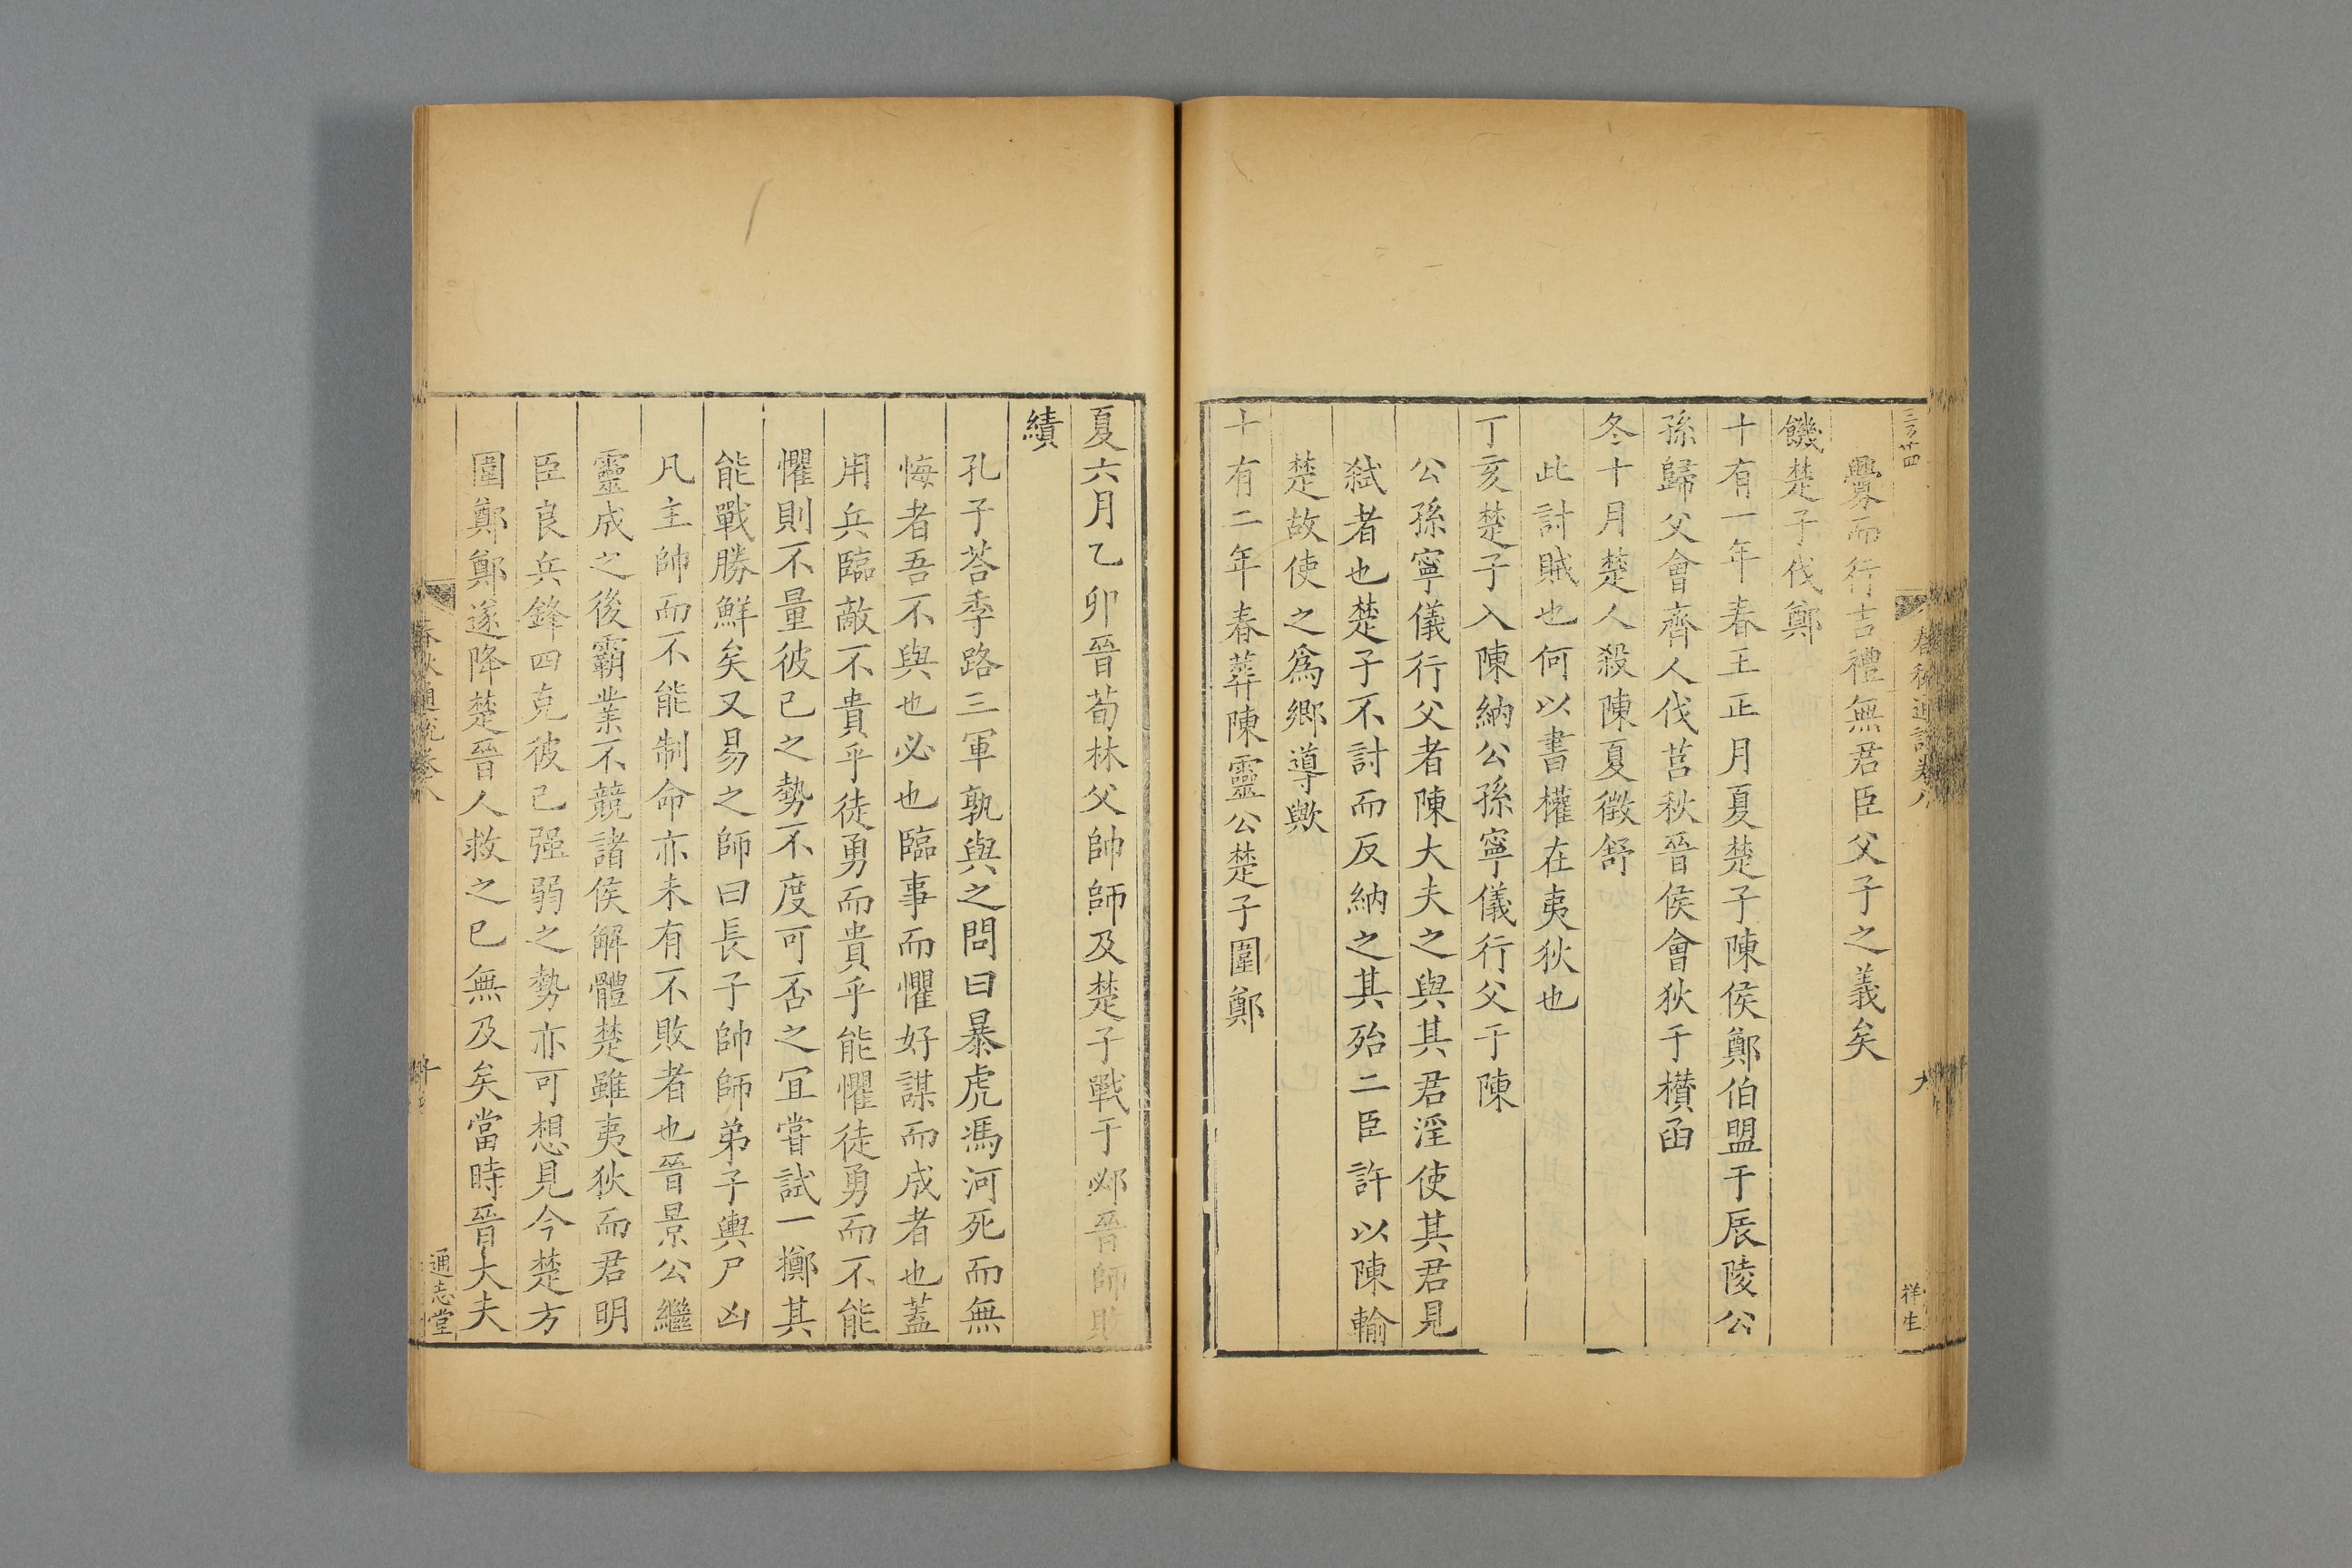 釁而行吉禮無君臣父子之義矣
饑楚子伐鄭
十有一年春王正月夏楚子陳侯鄭伯盟于辰陵公
孫歸父會齊人伐莒秋晉侯會狄于欑函
冬十月楚人殺陳夏徵舒
此討賊也何以書權在夷狄也
丁亥楚子入陳納公孫寧儀行父于陳
公孫寧儀行父者陳大夫之與其君淫使其君見
弑者也楚子不討而反納之其殆二臣許以陳輸
楚故使之爲鄉導歟
十有二年春葬陳靈公楚子圍鄭
祥生
夏六月乙卯晉荀林父帥師及楚子戰于邲晉師敗
績
孔子荅季路三軍孰與之問曰暴虎馮河死而無
悔者吾不與也必也臨事而懼好謀而成者也蓋
用兵臨敵不貴乎徒勇而貴乎能懼徒勇而不能
懼則不量彼己之勢不度可否之宜嘗試一擲其
能戰勝鮮矣又易之師曰長子帥師弟子輿尸凶
凡主帥而不能制命亦未有不敗者也晉景公繼
靈成之後霸業不競諸侯解體楚雖夷狄而君明
臣良兵鋒四克彼己强弱之勢亦可想見今楚方
圍鄭鄭遂降楚晉人救之已無及矣當時晉大夫
通志堂